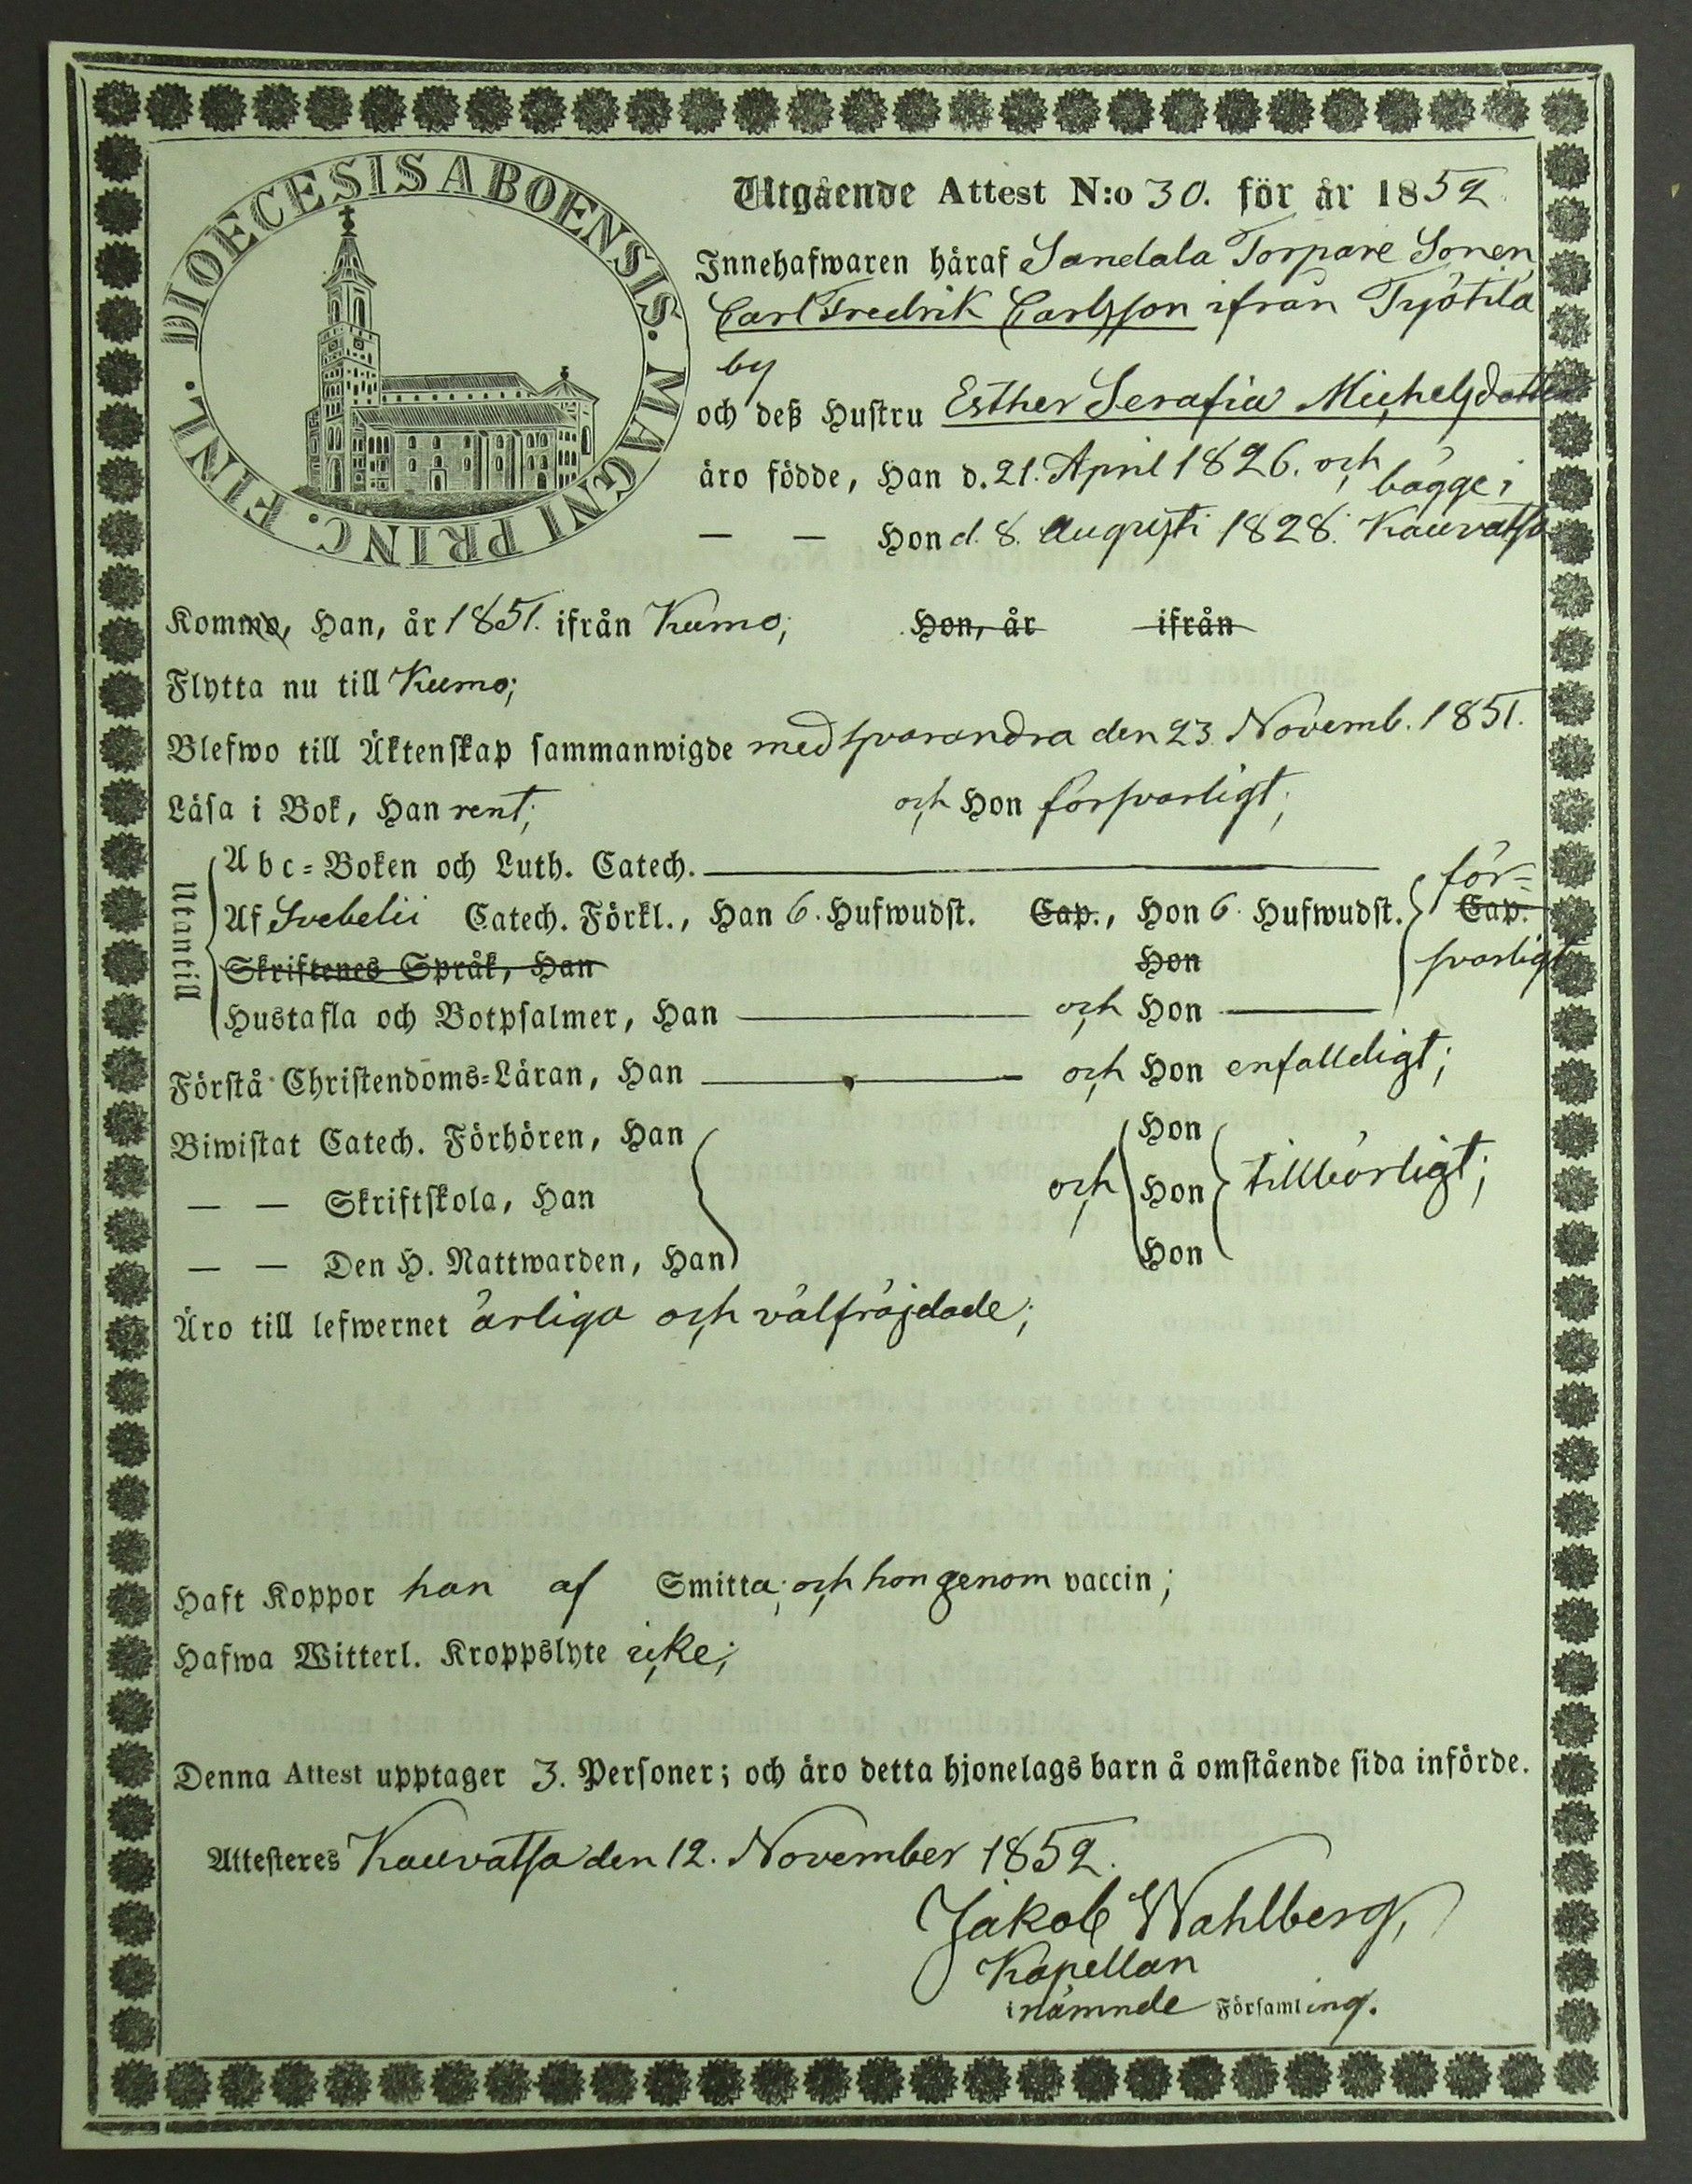 DIOECESIS ABOENSIS. MAGNI PRINC. FINL.
Utgående Attest N:o 30. för år 1852.
Innehafwaren häraf Sandala Torpare Sonen
Carl Fredrik Carlsson ifrån Työtilä
by
och deß Hustru Esther Serafia Michelsdotter
äro födde, Han d. 21. April 1826. och bägge i
— — Hon d. 8. Augusti 1828. Kauvatsa
Komme, Han, år 1851. ifrån Kumo; Hon, år ifrån
Flytta nu till Kumo;
Blefwo till Äktenskap sammanwigde med hvarandra den 23. Novemb. 1851.
Läsa i Bok, Han rent; och Hon försvarligt;
Utantill
Abc-Boken och Luth. Catech. för-
Af Svebelii Catech. Förkl., Han 6. Hufwudst. Cap., Hon 6 Hufwudst. Cap.
Skriftenes Språk, Han Hon svarligt
Hustafla och Botpsalmer, Han — och Hon —
Förstå Christendoms-Läran, Han — och Hon enfalldigt;
Biwistat Catech. Förhören, Han Hon
— — Skriftskola, Han och Hon tillbörligt;
— — Den H. Nattwarden, Han Hon
Äro till lefwernet ärliga och välfräjdade;
Haft Koppor han af Smitta; och hon genom vaccin;
Hafwa Witterl. Kroppslyte icke;
Denna Attest upptager 3. Personer; och äro detta hjonelags barn å omstående sida införde.
Attesteres Kauvatsa den 12. November 1852.
Jakob Wahlberg,
Kapellan
i nämnde Församling.